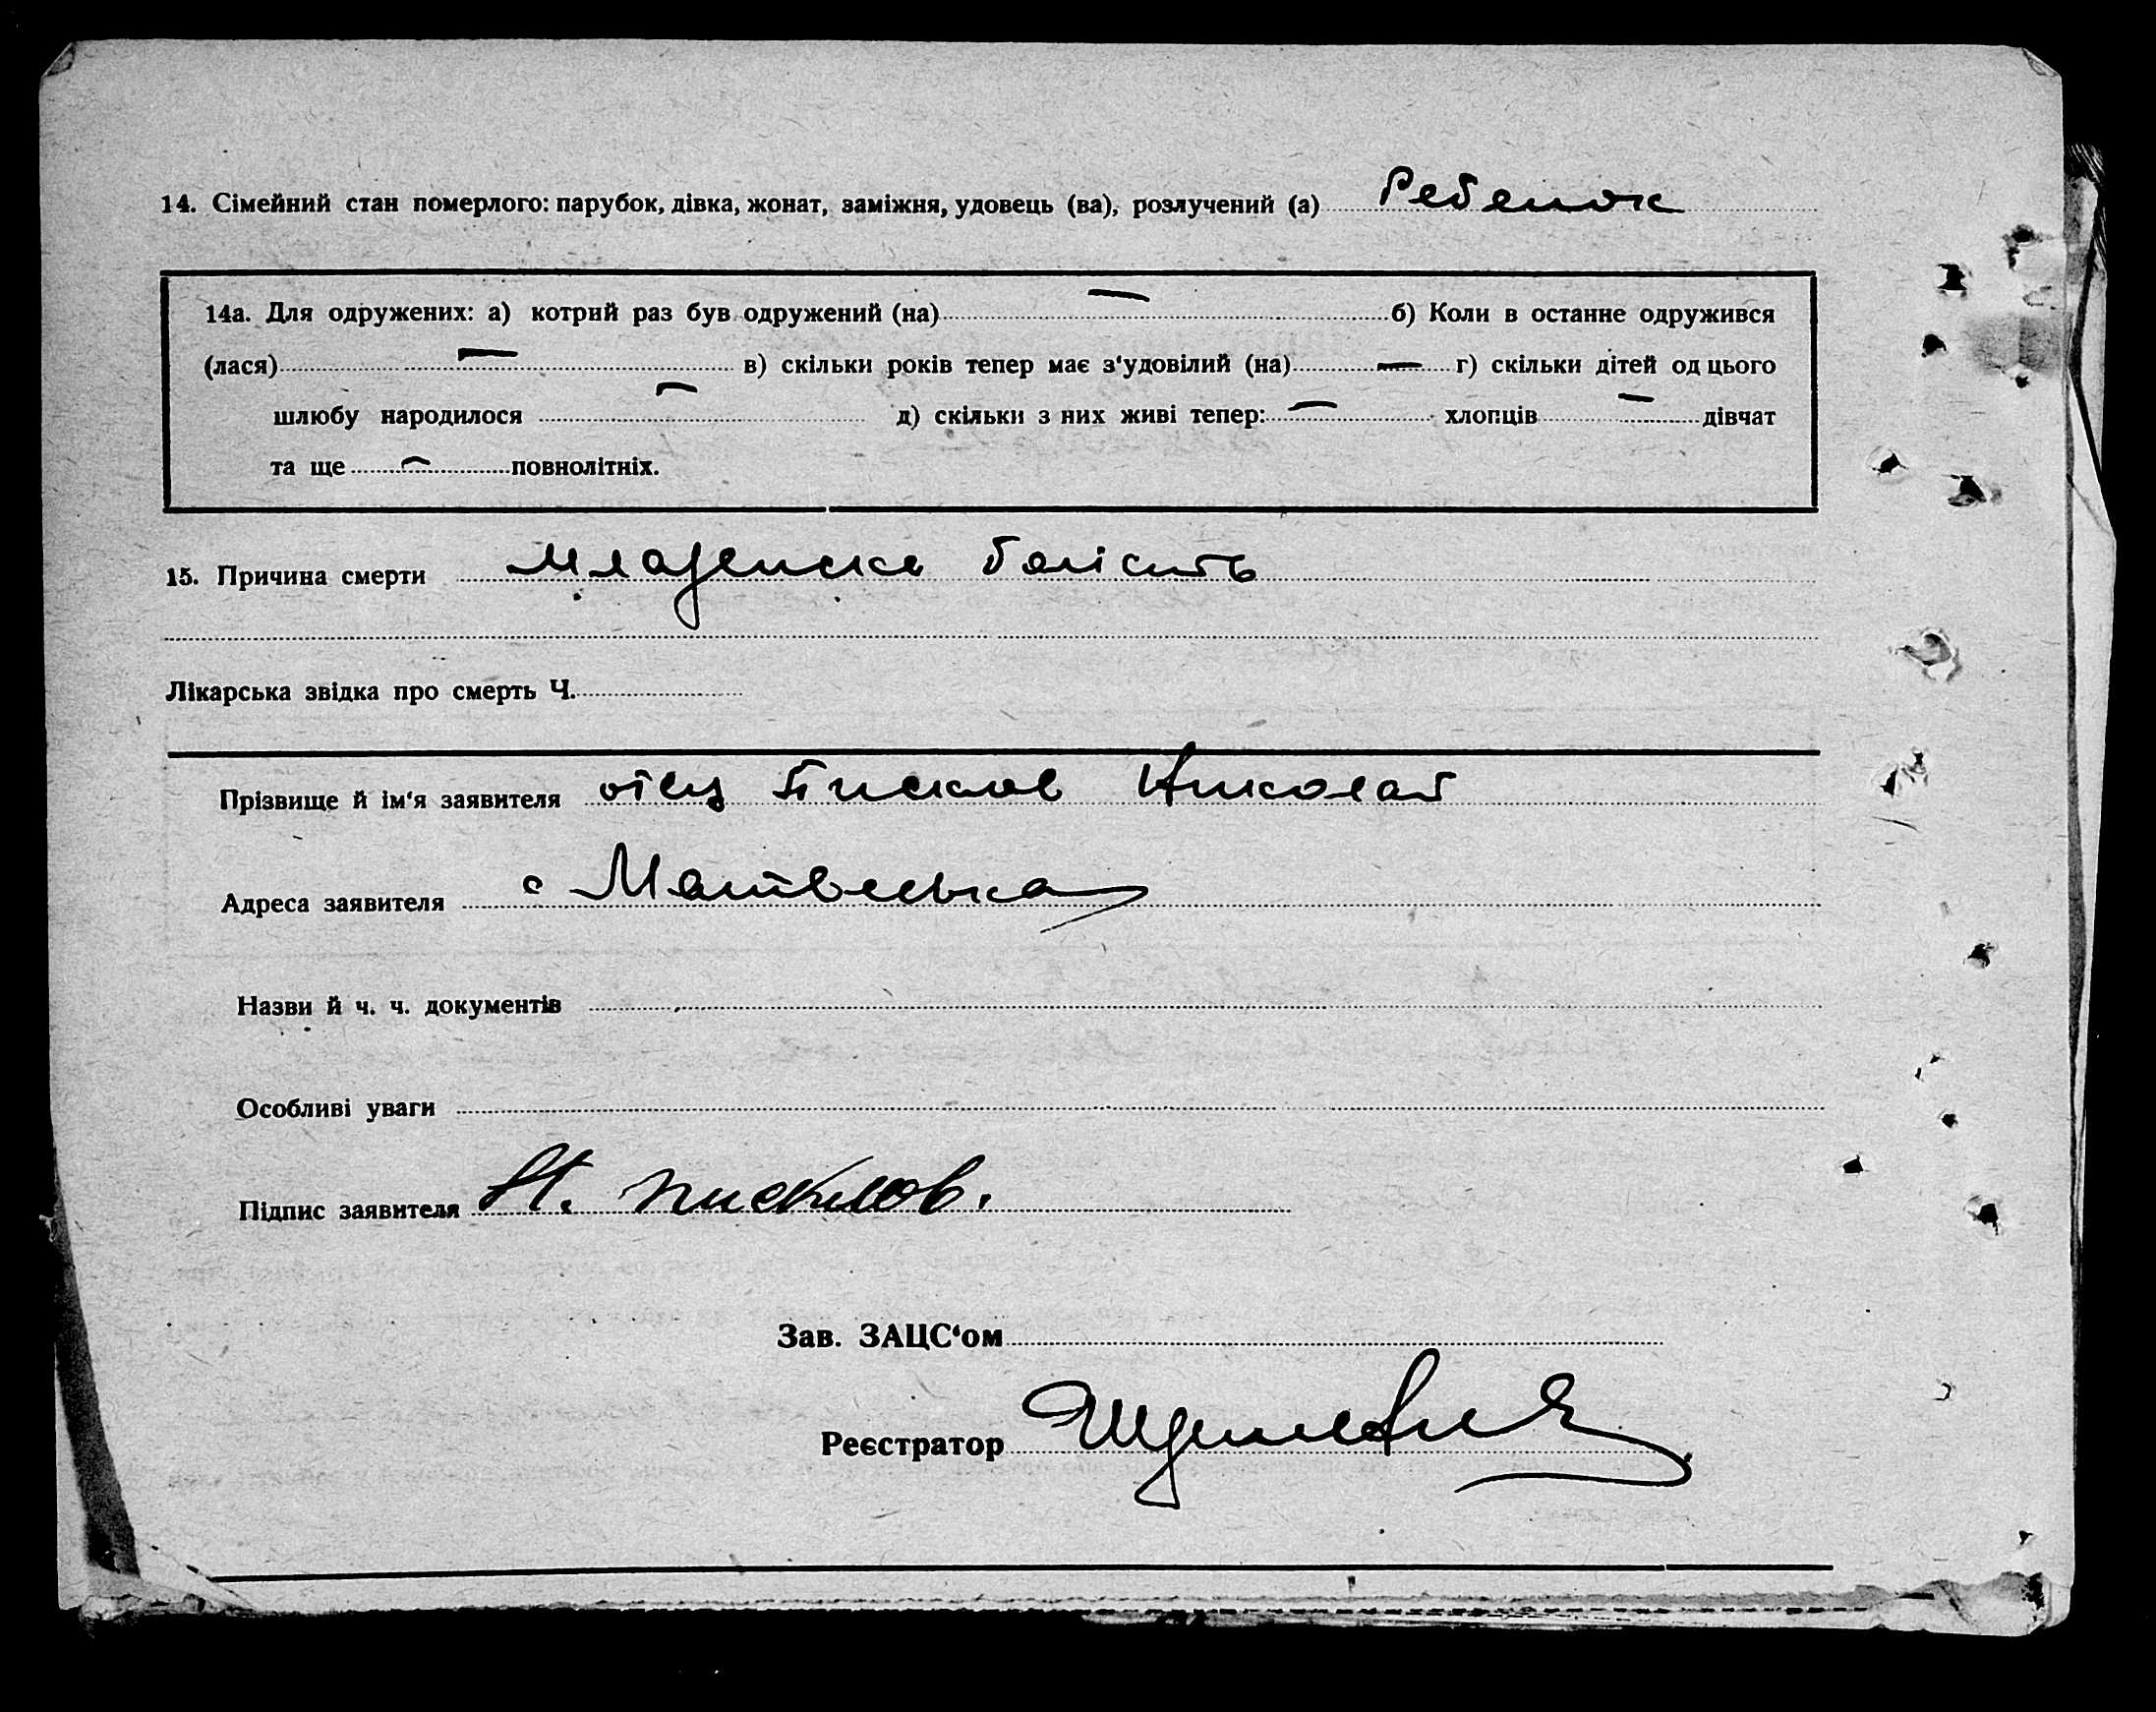 14. Сімейний стан померлого: парубок, дівка, жонат, заміжня, удовець (ва), розлучений (а) Ребенок
14а. Для одружених: а) котрий раз був одружений (на) — б) Коли в останне одружився
(лася) — в) скільки років тепер має з'удовілий (на) — г) скільки дітей од цього
шлюбу народилося — д) скільки з них живі тепер: — хлопців — дівчат
та ще — повнолітніх.
15. Причина смерти Младенска болість
Лікарська звідка про смерть Ч.
Прізвище й ім'я заявителя отец Писклов Николай
Адреса заявителя с Матвеевка
Назви й ч. ч. документів
Особливі уваги
Підпис заявителя Н. Писклов.
Зав. ЗАЦС'ом
Реєстратор